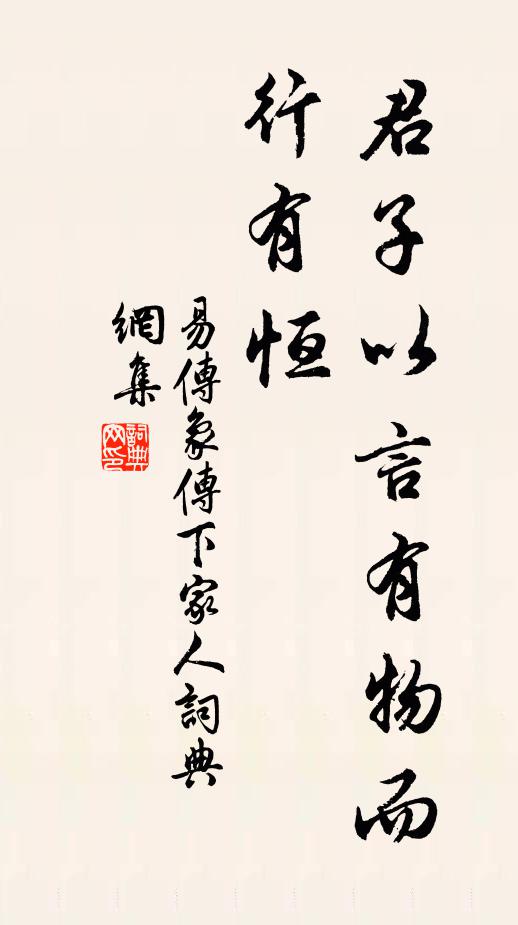 君子以言有物而
行有恒
易傳象傳下家人詞典
網集
詞典
网印